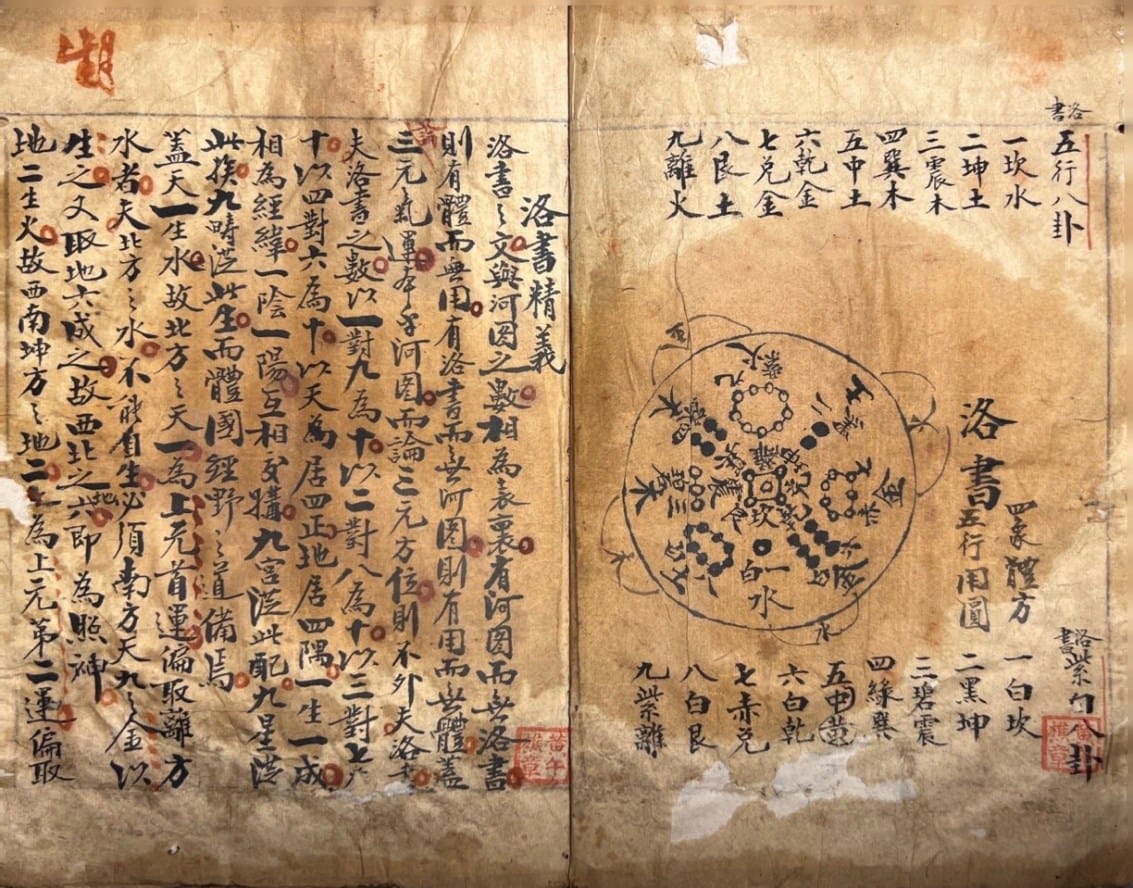 洛書五行八卦
一坎水
二坤土
三震木
四巽木
五中土
六乾金
七兌金
八艮土
九離火
洛書
四象體方
五行用圓
九紫火
一白水
洛書紫白八卦
一白坎
二黑坤
三碧震
四綠巽
五中黃
六白乾
七赤兌
八白艮
九紫離
洛書精義
洛書之文與河图之數相為表裏有河图而無洛書
則有體而無用有洛書而無河图則有用而無體蓋
三元氣運本乎河图而論三元方位則不外夫洛書
夫洛書之數以一對九為十以二對八為十以三對七為
十以四對六為十以天為居四正地居四隅一生一成
相為經緯一陰一陽互相交媾九宮從此配九星從
此挨九疇從此生而體國經野之道備焉
蓋天一生水故北方之天一為上元首運偏取離方
水者夫北方之水不能自生必須南方天九之金以
生之又取地六成之故西北之地六即為照神
地二生火故西南坤方之地二為上元第二運偏取